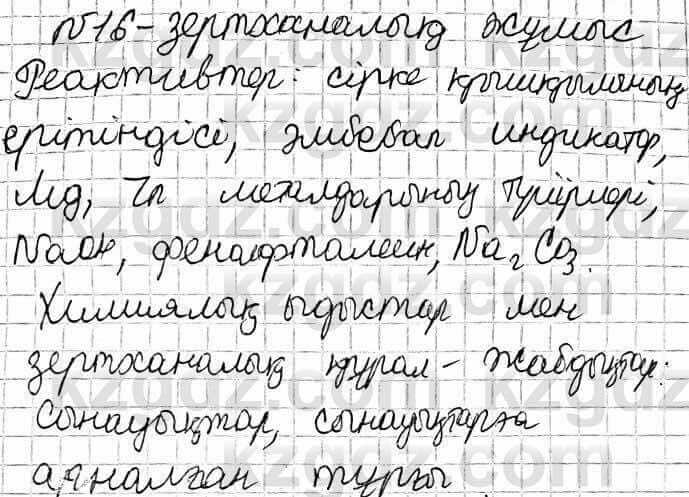 №16-зертханалық жұмыс
Реактивтер: сірке қышқылының
ерітіндісі, әмбебап индикатор,
Mg, Zn металдарының түйірлері,
NaOH, фенолфталеин, Na₂CO₃.
Химиялық ыдыстар мен
зертханалық құрал-жабдықтар:
Сынауықтар, сынауықтарға
арналған тұрғы